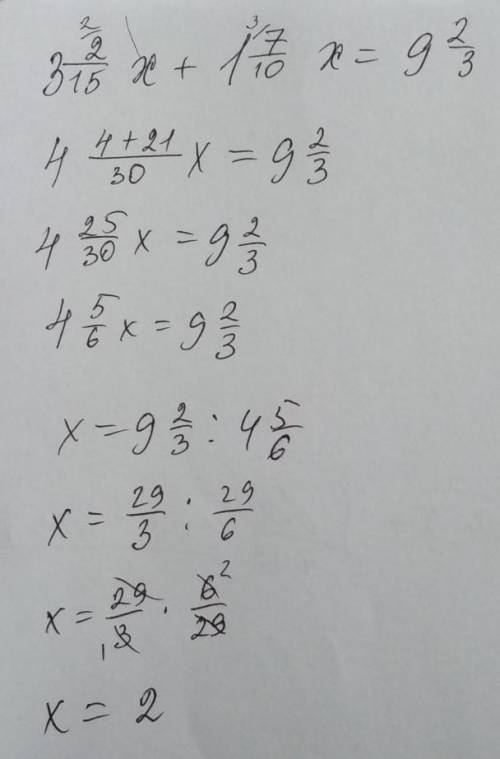 3 2/15 ² x + 1 7/10 ³ x = 9 2/3
4 (4+21)/30 x = 9 2/3
4 25/30 x = 9 2/3
4 5/6 x = 9 2/3
x = 9 2/3 : 4 5/6
x = 29/3 : 29/6
x = 29/3 1 · 6/29 2
x = 2